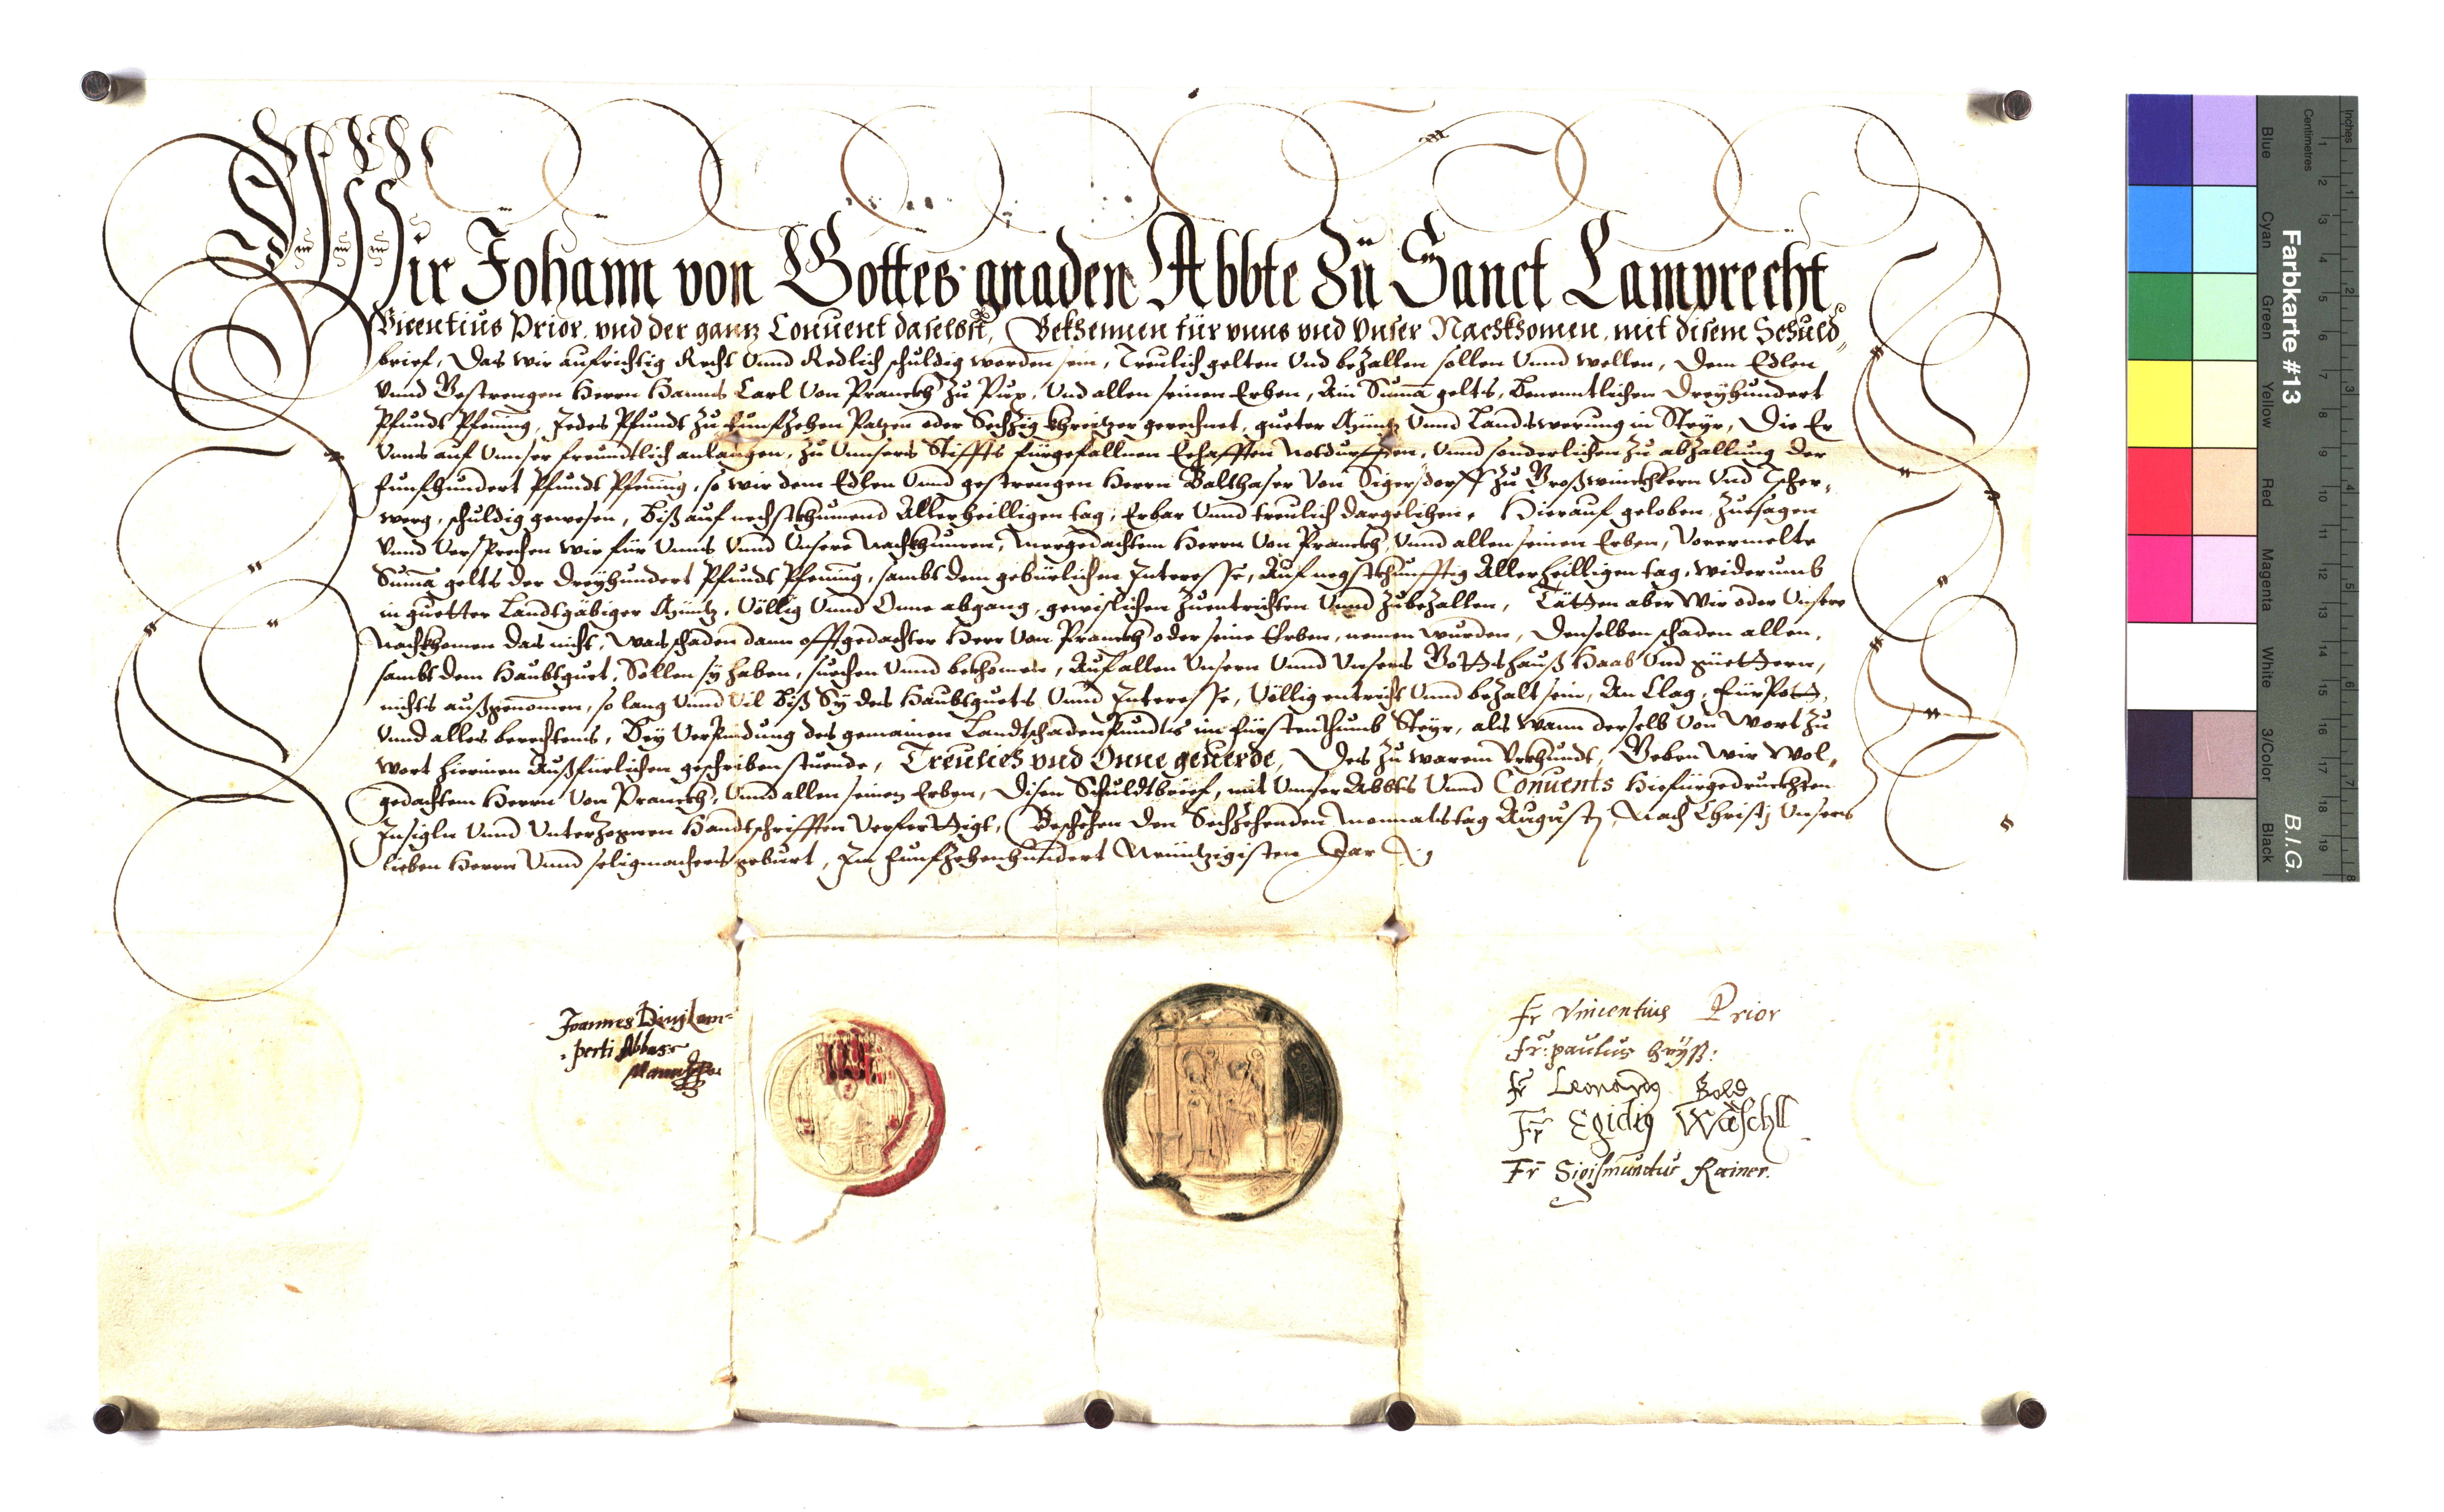 Wir Johann von Gottes gnaden Abbte Zu Sanct Lamprecht
Vicentius Prior, vnd der gantz Conuent daselbst, Bekhennen für vnns vnd Vnser Nachkhomen, mit disem Schuld„
brief, Das wir aufrichtig Recht Vnnd Redlich schuldig worden sein, Treulich gelten Vnd bezallen sollen Vnnd wellen, Dem Edlen
vnnd Gestrengen Herrn Hanns Carl Von Pranckh Zu Pux, Vnd allen seinen Erben, Ain Suma gelts, Benenntlichen Dreyhundert
Pfundt Pfening, Jedes Pfundt Zu funfzehen Patzen oder Sechzig khreitzer gerechnet, gueter Müntz Vnnd Landswerung in Steyr, Die Er
Vnns auf Vnnser freundtlich anlangen, Zu Vnnsers Stiffts fürgefallnen Ehafften Notdurfften, Vnnd sonderlichen Zu abzallung der
funfhundert Pfundt Pfening, so wir dem Edlen Vnnd gestrengen Herrn Balthaser Von Sigersdorff Zu Großwinckhlern Vnd Tscher„
werg, schuldig gewesen, Biß auf nechstkhumend Allerheilligen tag, Erbar Vnnd treulich dargelihen. Hierauf geloben, Zuesagen
Vnnd Versprechen wir für Vnns Vnnd Vnsere Nachkhumen, Mergedachtem Herrn Von Pranckh, Vnnd allen seinen Erben, Vorermelte
Suma gelts der Dreyhundert Pfundt Pfening, sambt dem gebürlichen Interesse, Auf negstkhunfftig Allerheilligen tag, widerumb
in guetter Landtgäbiger Müntz, Völlig Vnnd Onne abgang, gewislichen Zuentrichten Vnnd Zubezallen, Tätten aber Wir oder Vnsere
Nachkhomen das nicht, Was schaden dann offtgedachter Herr Von Pranckh oder seine Erben, nemen wurden, Denselben schaden allen,
sambt dem Haubtguet, Sollen sy haben, suechen Vnnd bekhomen, Auf allen Vnsern Vnnd Vnsers Gottshauß Haab Vnd güettern,
nichts außgenomen, so lang Vnnd Vil Biß Sy des Haubtguets Vnnd Interesse, Völlig entricht Vnnd bezalt sein, An Clag, Fürpott,
Vnnd alles berechtens, Bey Verpindung des gemainen Landtschadenpundts im Fürstenthumb Steyr, als wann derselb Von wort Zu
Wort hierinen Außfürlichen geschriben stuende, Treulich vnd Onne geuerde, Des Zu warem Vrkhundt, Geben Wir Wol„
gedachtem Herrn Von Pranckh, Vnnd allen seinen Erben, Disen Schuldtbrief, mit Vnnser Abbts Vnnd Conuents Hiefürgedruckhten
Insigln Vnnd Vnterzognen Handtschrifften Verferttigt, Beschehen den Sechzehenden Monnatstag Augusti, Nach Christi Vnsers
lieben Herrn Vnnd seligmachers geburt, Im Funfzehenhundert Neüntzigisten Jar
Joannes Diui Lam=
perti Abbas
Manu
Fr Vincentius Prior
Fr: paulus
Fr Leonardg
Fr Egidig Wäschll
Fr Sigismundus Rainer.
Farbkarte #13
B.I.G.
Inches
Centimetres
1 2 3 4 5 6 7 8
1 2 3 4 5 6 7 8 9 10 11 12 13 14 15 16 17 18 19
Blue
Cyan
Green
Yellow
Red
Magenta
White
3/Color
Black